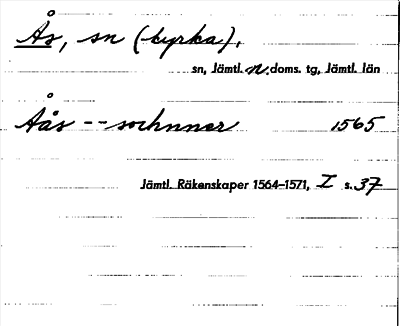 Ås, sn (kyrka).
sn, Jämtl. n. doms. tg, Jämtl. län
Åås -- sochnner 1565
Jämtl. Räkenskaper 1564-1571, I s. 37